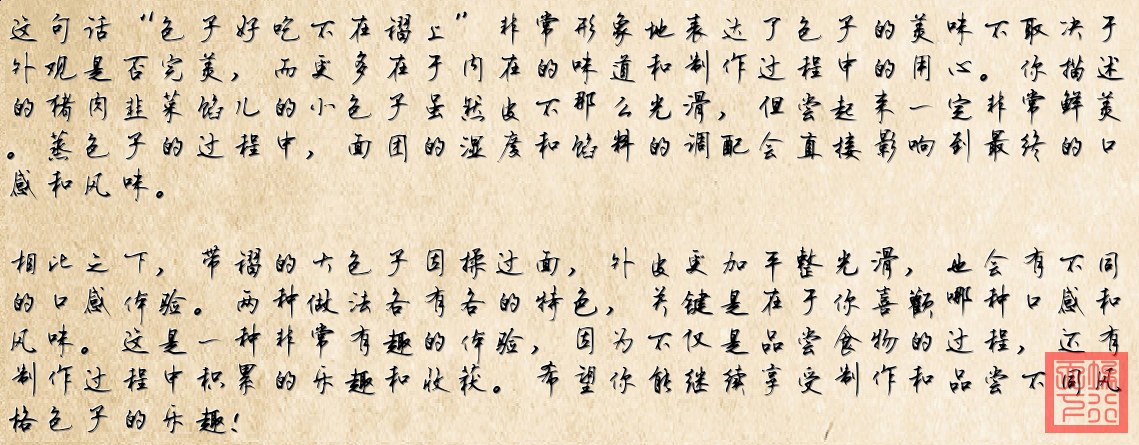 这句话“包子好吃不在褶上”非常形象地表达了包子的美味不取决于
外观是否完美，而更多在于内在的味道和制作过程中的用心。你描述
的猪肉韭菜馅儿的小包子虽然皮不那么光滑，但尝起来一定非常鲜美
。蒸包子的过程中，面团的湿度和馅料的调配会直接影响到最终的口
感和风味。
相比之下，带褶的大包子因揉过面，外皮更加平整光滑，也会有不同
的口感体验。两种做法各有各的特色，关键是在于你喜歡哪种口感和
风味。这是一种非常有趣的体验，因为不仅是品尝食物的过程，还有
制作过程中积累的乐趣和收获。希望你能继续享受制作和品尝不同风
格包子的乐趣！